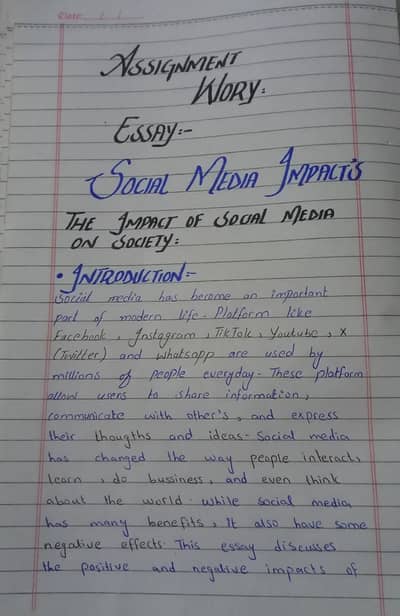 Date:
ASSIGNMENT
WORY:
ESSAY:-
SOCIAL MEDIA IMPACT'S
THE IMPACT OF SOCIAL MEDIA
ON SOCIETY:
• INTRODUCTION:-
Social media has become an important
part of modern life. Platform like
Facebook, Instagram, TikTok, Youtube, X
(Twitter) and whatsapp are used by
millions of people everyday. These platform
allow users to share information,
communicate with other's, and express
their thougths and ideas. Social media
has changed the way people interact,
learn, do bussiness, and even think
about the world. while social media,
has many benefits, It also have some
negative effects. This essay discusses
the positive and negative impacts of